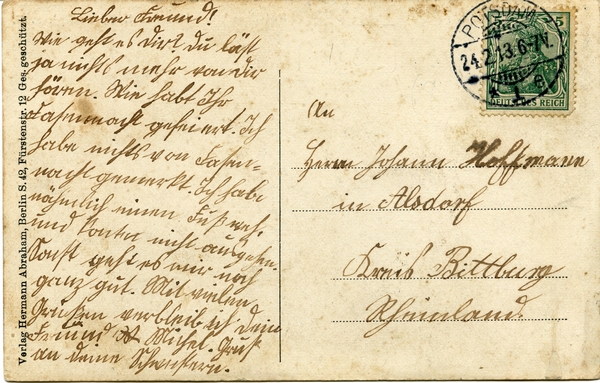 Lieber Freund!
Wie geht es dir? Du läst
ja nichts mehr von dir
hören. Wie habt Ihr
Fasenacht gefeiert. Ich
habe nichts von Fasen-
nacht gemerkt. Ich habe
nähmlich einen Fuß weh,
und konte nicht ausgehen.
Sonst geht es mir noch
ganz gut. Mit vielen
Grüßen verbleib ich dein
Freund Michel. Gruß
an deine Schwestern.
Verlag Hermann Abraham, Berlin S. 42, Fürstenstr. 12 Ges. geschützt.
POTSDAM
24.2.13.6-7N.
* 1 e
5
DEUTSCHES REICH
An
Herrn Johann Hoffmann
in Alsdorf
Kreis Bittburg
Rheinland.